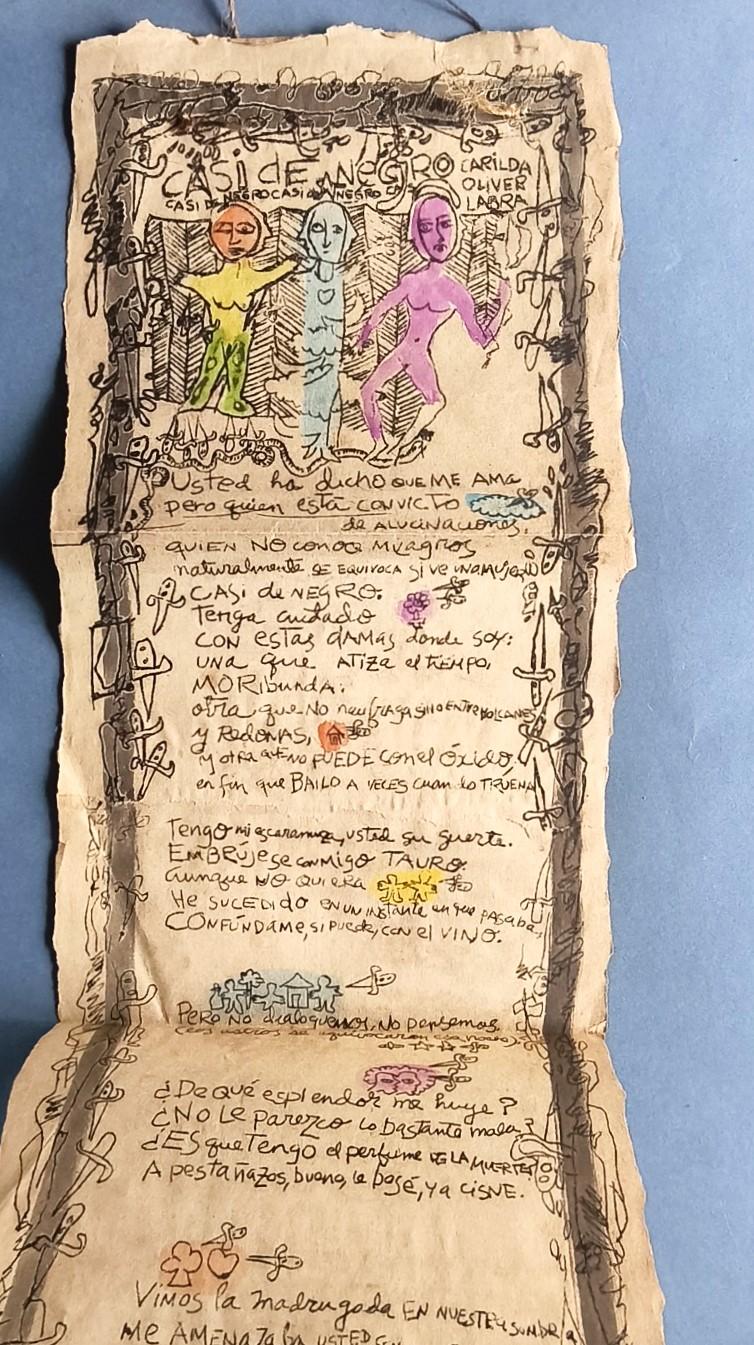 CASI DE NEGRO
CARILDA
OLIVER
LABRA
CASI DE NEGRO CASI DE NEGRO CA
Usted ha dicho QUE ME AMA
pero quien está CONVICTO
de ALUCINACIONES,
QUIEN NO conoce MILAGROS
naturalmente SE EQUIVOCA SI VE UNA MUJER
CASI de NEGRO.
Tenga cuidado
CON estas DAMAS donde SOY:
UNA que ATIZA el TIEMPO,
MORIbunda;
otra que NO naufraga SINO ENTRE VOLCANES
y REDOMAS,
y otra que no PUEDE con el óxido,
en fin que BAILO A VECES cuando TRUENA
Tengo mi escaramuza, usted su suerte.
EMBRÚJESE CONMIGO TAURO.
aunque NO QUIERA
He SUCEDIDO EN UN INStante en que PASABA,
CONFÚNDAME, SI PUEDE, CON el VINO.
Pero No dialoguemos, No pensemos.
(Los astros se equivocaron esa noche)
¿De qué esplendor me huye?
¿NO Le parezco lo bastante mala?
¿ES que Tengo el perfume DE LA MUERTE?
A pestañazos, bueno, le besé, ya CISNE.
VIMOS la madrugada EN NUESTRA SOMBRA
ME AMENAZABA USTED